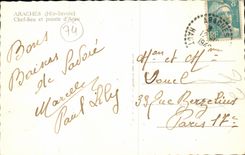 ARACHES (Hte-Savoie)
Chef-lieu et pointe d'Areu
74
Bons
Baisers
de Savoie
Marcel
Paul
Mr et Mme
33 Rue Berzélius
Paris 17e